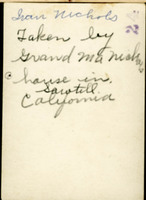 Ivan Nichols
Taken by
Grand ma Nichols
house in
Sawtell.
California